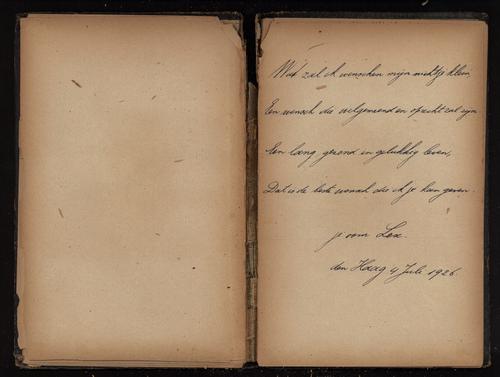 Wat zal ik wenschen mijn nichtje klein,
Een wensch die welgemeend en oprecht zal zijn
Een lang gezond en gelukkig leven,
Dat is de beste wensch die ik je kan geven.
je oom Lex.
den Haag 4 Juli 1926.